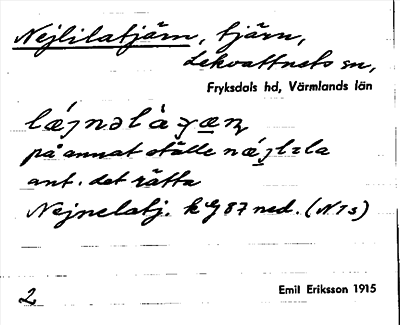 Nejlilatjärn, tjärn,
Lekvattnets sn,
Fryksdals hd, Värmlands län
på annat ställe
ant. det rätta
Nejnelatj. k G 87 ned. (N 1 s)
2
Emil Eriksson 1915